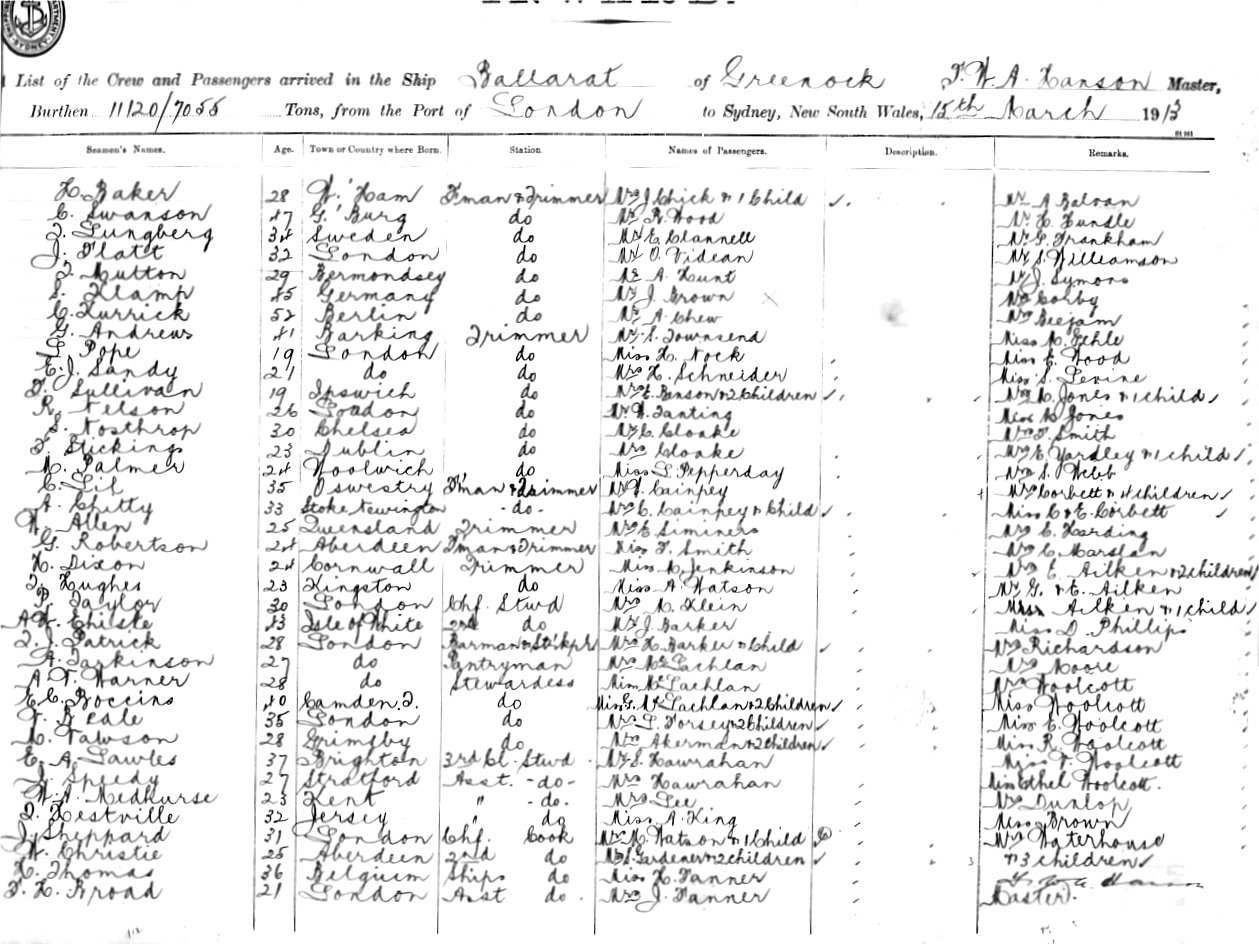 List of the Crew and Passengers arrived in the Ship Ballarat of Greenock F. W. A. Hanson Master,
Burthen 11120/7055 Tons, from the Port of London to Sydney, New South Wales, 15th March 1913
Seamen's Names. Age. Town or Country where Born. Station. Names of Passengers. Description. Remarks.
H. Baker 28 W. Ham F'man & Trimmer Mrs J. Chick & 1 Child Mr A Balvan
C. Swanson 47 G. Burg do Mr R. Wood Mr H. Hundle
J. Lungberg 34 Sweden do Mr E. Clannell Mr G. Frankham
J. Platt 32 London do Mr O. Videan Mr S. Williamson
J. Mutton 29 Bermondsey do Mr A. Hunt Mr J. Symons
S. Klamp 45 Germany do Mr J. Brown Mrs Corby
C. Kurrick 52 Berlin do Mr A. Chew Mrs Beejam
G. Andrews 41 Barking Trimmer Mr S. Townsend Miss M. Fehle
Pope 19 London do Miss H. Nock Miss E. Wood
E. J. Sandy 21 do do Mrs H. Schneider Miss S. Levine
D. Sullivan 19 Ipswich do Mrs E. Benson & 2 Children Mrs M. Jones & 1 child
R. Nelson 26 London do Mr W. Tanting Miss M. Jones
S. Nosthrop 30 Chelsea do Mr C. Cloake Mrs F. Smith
F. Stickings 23 Dublin do Mrs Cloake Mrs E. Yardley & 1 child
M. Palmer 24 Woolwich do Miss L. Pepperday Mrs S. Webb
C. Gil 35 Oswestry F'man & Trimmer Mr Cainpey Mrs Corbett & 4 children
A. Chitty 33 Stoke Newington - do - Mrs C. Cainpey & Child Miss C & E. Corbett
W. Allen 25 Queensland Trimmer Mrs E. Siminers Mrs C. Harding
G. Robertson 24 Aberdeen F'man & Trimmer Miss F. Smith Mrs C. Marslan
H. Dixon 24 Cornwall Trimmer Miss M. Jenkinson Mrs E. Aitken & 2 children
J. Hughes 23 Kingston do Miss A. Watson Mr G. & E. Aitken
P. Taylor 30 London Chf. Stwd Mrs M. Klein Aitken & 1 child
A. W. 43 Isle of White 2nd do Mr J. Barker Miss D. Phillips
J. J. Patrick 28 London Barman & St'kpr Mrs H. Barker & Child Mrs Richardson
A. Parkinson 27 do Pantryman Mrs McLachlan Mrs Moore
A. V. Warner 28 do Stewardess Miss McLachlan Mrs Woolcott
E. C. Boccins 40 Camden T. do Miss G. McLachlan & 2 Children Miss Woolcott
V. Neale 35 London do Mrs L. Dorsey & 2 Children Miss E. Woolcott
M. Vawson 28 Grimsby do Mrs Akerman & 2 Children Miss R. Woolcott
E. A. Lawles 37 Brighton 3rd Cl. Stwd Mr S. Hawrahan Miss V. Woolcott
J. Speedy 27 Stratford Asst. - do - Mrs Hawrahan Miss Ethel Woolcott.
W. A. Medhurse 23 Kent " - do. - Mrs Lee Mrs Dunlop
J. Hestville 32 Jersey " do Miss A. King Miss Brown
J. Sheppard 31 London Chf. Cook Mrs M. Watson & 1 Child Mrs Waterhouse
W. Christie 25 Aberdeen 2nd do Mrs S. Gardener & 2 children & 3 children
H. Thomas 36 Belguim Ships do Miss H. Fanner
F. H. Broad 21 London Asst do. Mrs J. Fanner Master.